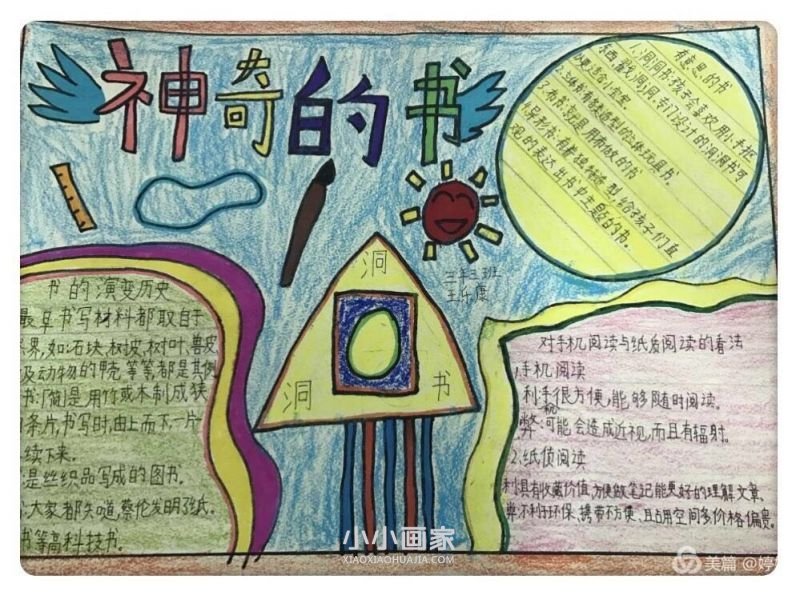 神奇的书
有意思的书
1.洞洞书:孩子会喜欢用小手抠
东西,戳洞洞,专门设计的洞洞书可
又布书:就是用布做的书
观的表达出书中主题的书。
三年三班
洞
洞
书
书的演变历史
最早书写材料都取自于
界,如:石块,树皮,树叶,兽皮
及动物的甲壳等等都是其例
书:「简」是用竹或木制成狭
条片,书写时,由上而下一片
续下来。
是丝织品写成的图书。
大家都知道,蔡伦发明了纸。
书等高科技书。
对手机阅读与纸质阅读的看法
1.手机阅读
利:手机很方便,能够随时阅读。
弊:可能会造成近视,而且有辐射。
2.纸质阅读
利:具有收藏价值,方便做笔记能更好的理解文章。
弊:不利于环保,携带不方便,且占用空间多,价格偏贵。
小小画家
XIAOXIAOHUAJIA.COM
美篇 @婷